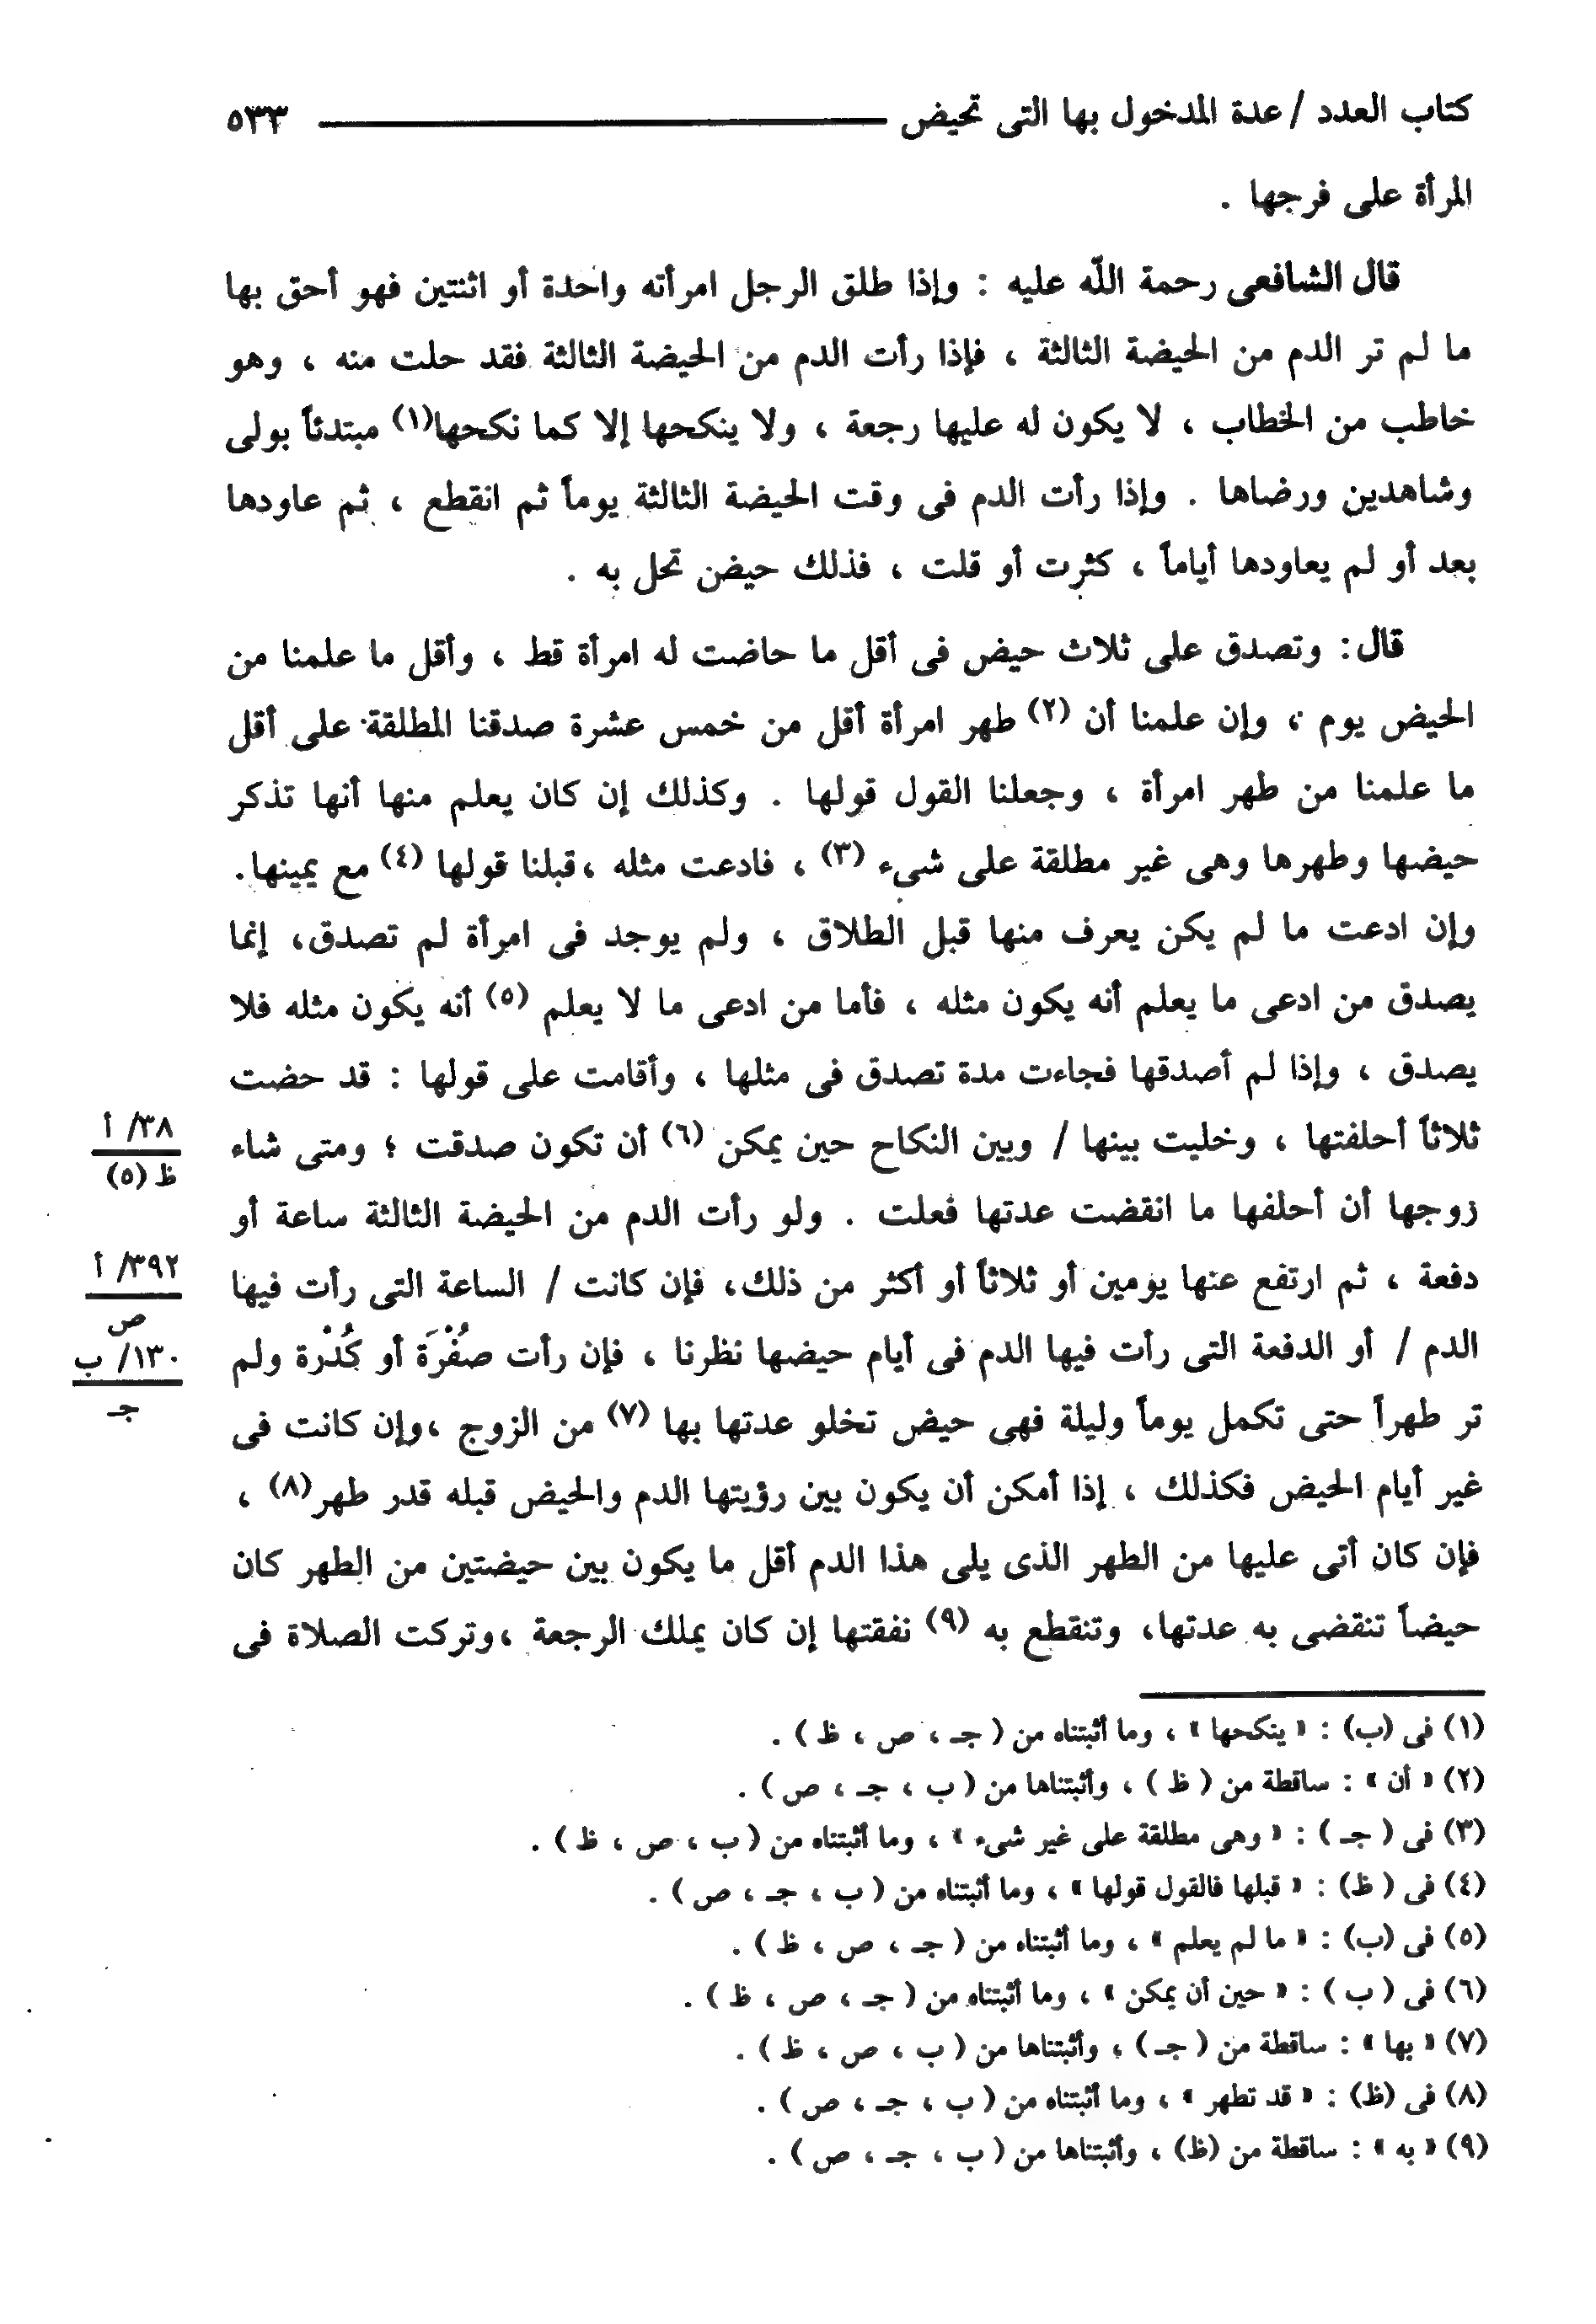 كتاب العدد / عدة المدخول بها التى تحيض ٥٣٣
المرأة على فرجها .
قال الشافعى رحمة اللّه عليه : وإذا طلق الرجل امرأته واحدة أو اثنتين فهو أحق بها
ما لم تر الدم من الحيضة الثالثة ، فإذا رأت الدم من الحيضة الثالثة فقد حلت منه ، وهو
خاطب من الخطاب ، لا يكون له عليها رجعة ، ولا ينكحها إلا كما نكحها(١) مبتدئاً بولى
وشاهدين ورضاها . وإذا رأت الدم فى وقت الحيضة الثالثة يوماً ثم انقطع ، ثم عاودها
بعد أو لم يعاودها أياماً ، كثرت أو قلت ، فذلك حيض تحل به .
قال : وتصدق على ثلاث حيض فى أقل ما حاضت له امرأة قط ، وأقل ما علمنا من
الحيض يوم ، وإن علمنا أن (٢) طهر امرأة أقل من خمس عشرة صدقنا المطلقة على أقل
ما علمنا من طهر امرأة ، وجعلنا القول قولها . وكذلك إن كان يعلم منها أنها تذكر
حيضها وطهرها وهى غير مطلقة على شىء (٣) ، فادعت مثله ،قبلنا قولها (٤) مع يمينها.
وإن ادعت ما لم يكن يعرف منها قبل الطلاق ، ولم يوجد فى امرأة لم تصدق، إنما
يصدق من ادعى ما يعلم أنه يكون مثله ، فأما من ادعى ما لا يعلم (٥) أنه يكون مثله فلا
يصدق ، وإذا لم أصدقها فجاءت مدة تصدق فى مثلها ، وأقامت على قولها : قد حضت
ثلاثاً أحلفتها ، وخليت بينها / وبين النكاح حين يمكن (٦) أن تكون صدقت ؛ ومتى شاء
٣٨/ أ
ظ (٥)
زوجها أن أحلفها ما انقضت عدتها فعلت . ولو رأت الدم من الحيضة الثالثة ساعة أو
دفعة ، ثم ارتفع عنها يومين أو ثلاثاً أو أكثر من ذلك، فإن كانت / الساعة التى رأت فيها
٣٩٢/ أ
ص
الدم / أو الدفعة التى رأت فيها الدم فى أيام حيضها نظرنا ، فإن رأت صُفْرَة أو كُدْرة ولم
١٣٠/ ب
جـ
تر طهراً حتى تكمل يوماً وليلة فهى حيض تخلو عدتها بها (٧) من الزوج ،وإن كانت فى
غير أيام الحيض فكذلك ، إذا أمكن أن يكون بين رؤيتها الدم والحيض قبله قدر طهر(٨) ،
فإن كان أتى عليها من الطهر الذى يلى هذا الدم أقل ما يكون بين حيضتين من الطهر كان
حيضاً تنقضى به عدتها، وتنقطع به (٩) نفقتها إن كان يملك الرجعة ،وتركت الصلاة فى
(١) فى (ب) : « ينكحها » ، وما أثبتناه من ( جـ ، ص ، ظ ) .
(٢) « أن » : ساقطة من ( ظ ) ، وأثبتناها من ( ب ، جـ ، ص ) .
(٣) فى ( جـ ) : « وهى مطلقة على غير شىء » ، وما أثبتناه من ( ب ، ص ، ظ ) .
(٤) فى ( ظ) : « قبلها فالقول قولها » ، وما أثبتناه من ( ب ، جـ ، ص ) .
(٥) فى (ب) : « ما لم يعلم » ، وما أثبتناه من ( جـ ، ص ، ظ ) .
(٦) فى ( ب ) : « حين أن يمكن » ، وما أثبتناه من ( جـ ، ص ، ظ ) .
(٧) « بها » : ساقطة من ( جـ ) ، وأثبتناها من ( ب ، ص ، ظ ) .
(٨) فى (ظ) : « قد تطهر » ، وما أثبتناه من ( ب ، جـ ، ص ) .
(٩) « به » : ساقطة من (ظ) ، وأثبتناها من ( ب ، جـ ، ص ) .